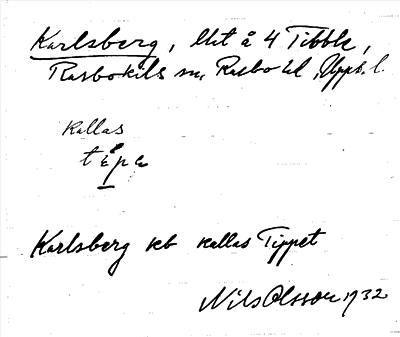 Karlsberg, lht å 4 Tibble,
Rasbokils sn, Rasbo hd, Upps. l.
Kallas
tipa
Karlsberg kallas Tippet
Nils Olsson 1932